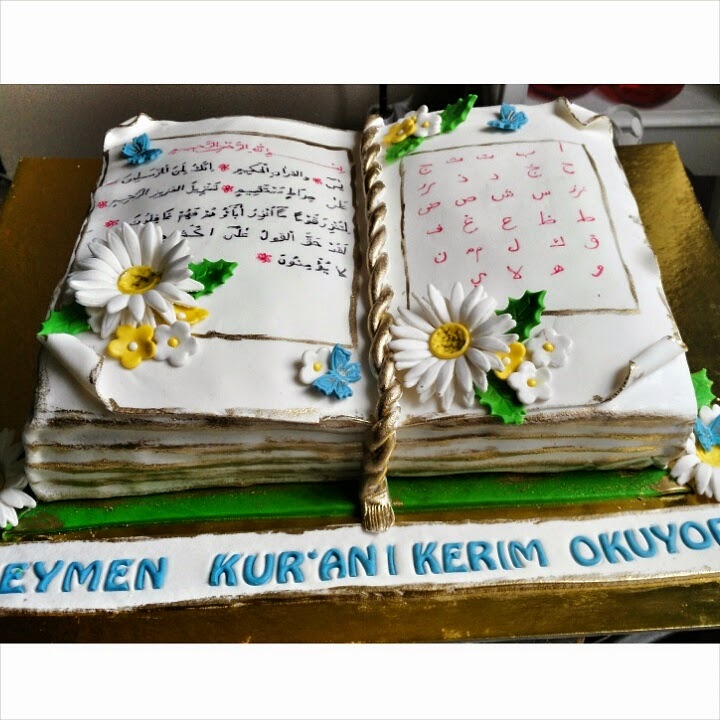 بسم الله الرحمن الرحيم
يس والقرآن الحكيم انك لمن المرسلين
على صراط مستقيم تنزيل العزيز الرحيم
لتنذر قوما ما أنذر آباؤهم فهم غافلون
لقد حق القول على
لا يؤمنون
ا ب ت ث ج
ح خ د ذ ر
ز س ش ص ض
ط ظ ع غ ف
ق ك ل م ن
و ه لا ي
EYMEN KUR'ANI KERIM OKUYOR